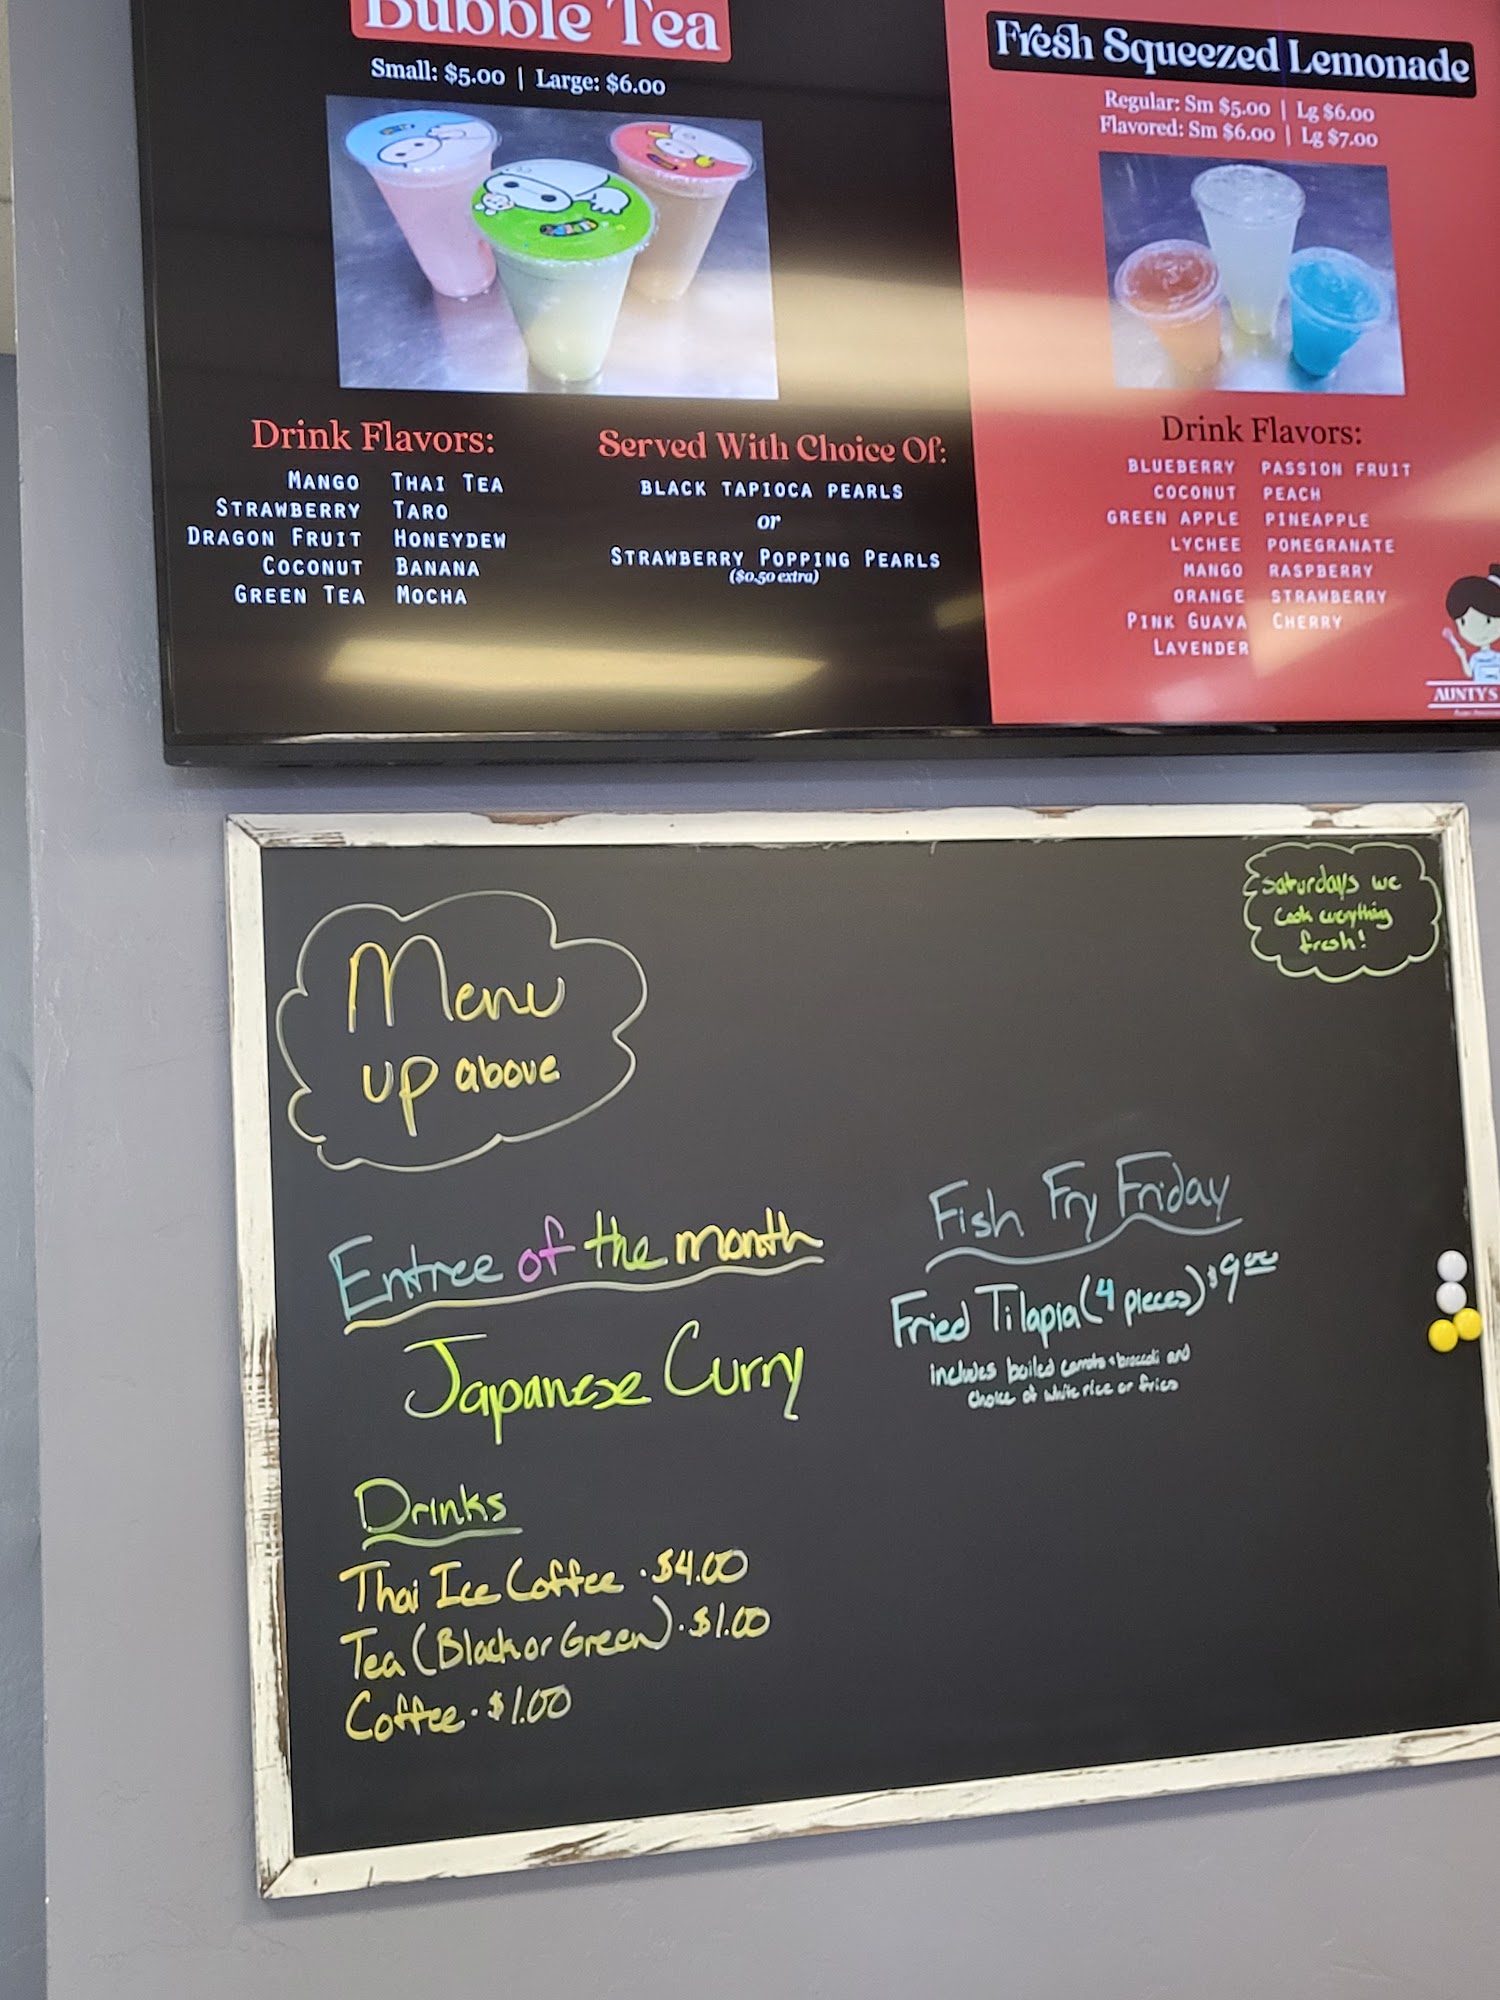 Bubble Tea
Small: $5.00 | Large: $6.00
Drink Flavors:
MANGO THAI TEA
STRAWBERRY TARO
DRAGON FRUIT HONEYDEW
COCONUT BANANA
GREEN TEA MOCHA
Served With Choice Of:
BLACK TAPIOCA PEARLS
or
STRAWBERRY POPPING PEARLS
($0.50 extra)
Fresh Squeezed Lemonade
Regular: Sm $5.00 | Lg $6.00
Flavored: Sm $6.00 | Lg $7.00
Drink Flavors:
BLUEBERRY PASSION FRUIT
COCONUT PEACH
GREEN APPLE PINEAPPLE
LYCHEE POMEGRANATE
MANGO RASPBERRY
ORANGE STRAWBERRY
PINK GUAVA CHERRY
LAVENDER
AUNTY'S
Menu
up above
Saturdays we
cook everything
fresh!
Entree of the month
Japanese Curry
Drinks
Thai Ice Coffee · $4.00
Tea (Black or Green) · $1.00
Coffee · $1.00
Fish Fry Friday
Fried Tilapia (4 pieces) $9.00
includes boiled carrots + broccoli and
choice of white rice or fries